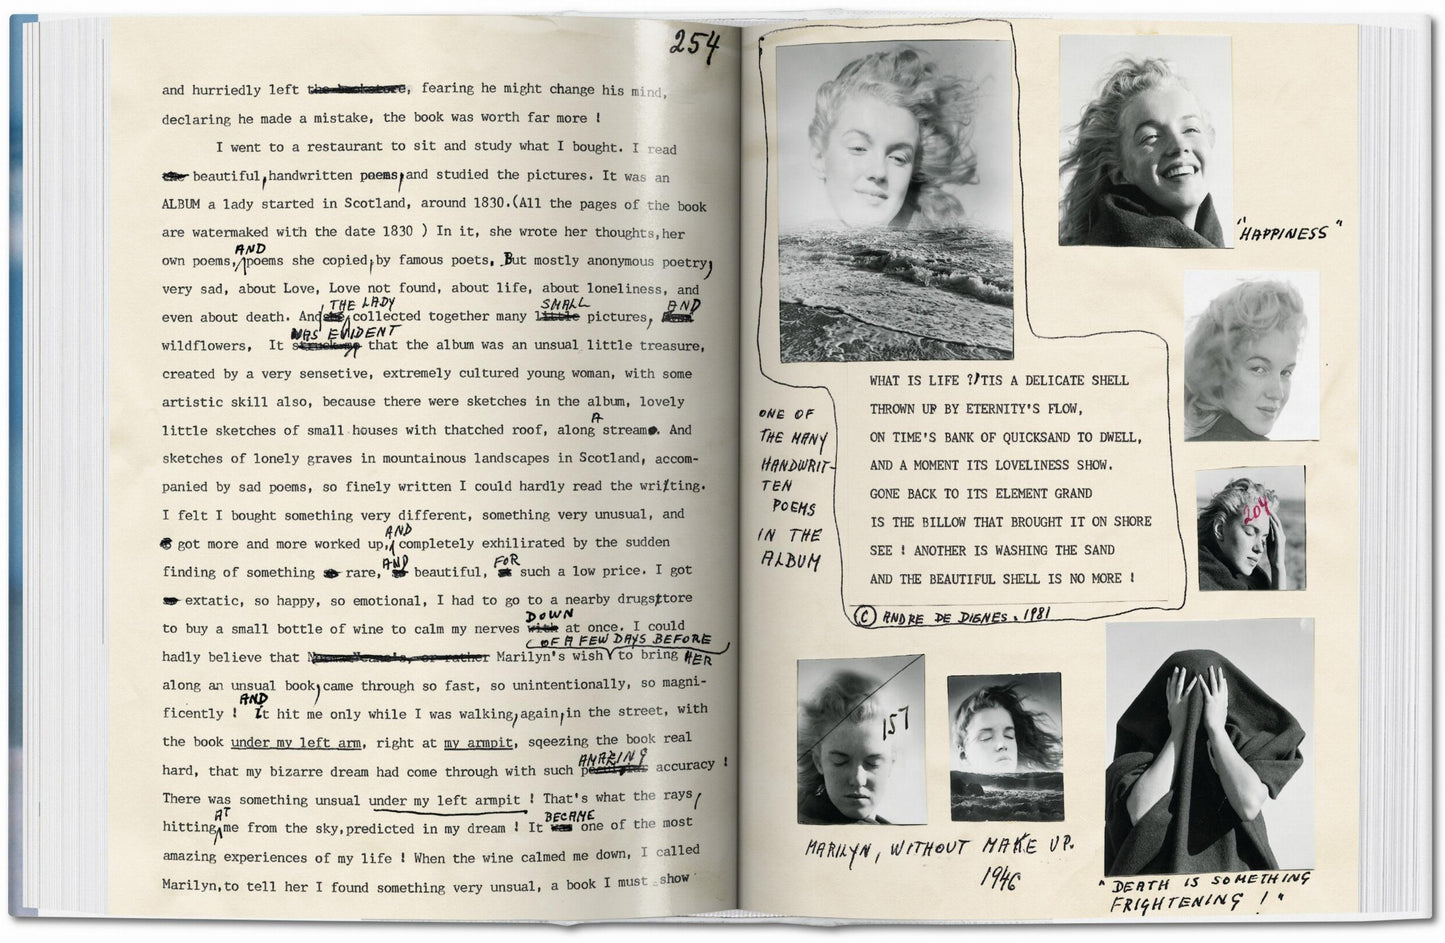 254
and hurriedly left the bookstore, fearing he might change his mind,
declaring he made a mistake, the book was worth far more !
I went to a restaurant to sit and study what I bought. I read
the beautiful, handwritten poems, and studied the pictures. It was an
ALBUM a lady started in Scotland, around 1830.(All the pages of the book
are watermaked with the date 1830 ) In it, she wrote her thoughts, her
AND
own poems, poems she copied, by famous poets. But mostly anonymous poetry,
very sad, about Love, Love not found, about life, about loneliness, and
THE LADY SMALL AND
even about death. And she collected together many little pictures,
WAS EVIDENT
wildflowers, It struck me that the album was an unusual little treasure,
created by a very sensetive, extremely cultured young woman, with some
artistic skill also, because there were sketches in the album, lovely
A
little sketches of small houses with thatched roof, along stream. And
sketches of lonely graves in mountainous landscapes in Scotland, accom-
panied by sad poems, so finely written I could hardly read the writing.
I felt I bought something very different, something very unusual, and
AND
got more and more worked up, completely exhilirated by the sudden
AND FOR
finding of something rare, beautiful, such a low price. I got
extatic, so happy, so emotional, I had to go to a nearby drugsttore
DOWN
to buy a small bottle of wine to calm my nerves with at once. I could
OF A FEW DAYS BEFORE
hadly believe that Norma Jeane's, or rather Marilyn's wish to bring HER
along an unsual book, came through so fast, so unintentionally, so magni-
AND
ficently ! It hit me only while I was walking, again, in the street, with
the book under my left arm, right at my armpit, sqeezing the book real
AMAZING
hard, that my bizarre dream had come through with such accuracy !
There was something unsual under my left armpit ! That's what the rays,
AT BECAME
hitting me from the sky, predicted in my dream ! It was one of the most
amazing experiences of my life ! When the wine calmed me down, I called
Marilyn, to tell her I found something very unsual, a book I must show
"HAPPINESS"
WHAT IS LIFE ?'TIS A DELICATE SHELL
THROWN UP BY ETERNITY'S FLOW,
ON TIME'S BANK OF QUICKSAND TO DWELL,
AND A MOMENT ITS LOVELINESS SHOW.
GONE BACK TO ITS ELEMENT GRAND
IS THE BILLOW THAT BROUGHT IT ON SHORE
SEE ! ANOTHER IS WASHING THE SAND
AND THE BEAUTIFUL SHELL IS NO MORE !
© ANDRE DE DIENES. 1981
ONE OF
THE MANY
HANDWRIT-
TEN
POEMS
IN THE
ALBUM
204
157
MARILYN, WITHOUT MAKE UP.
1946
"DEATH IS SOMETHING
FRIGHTENING !"